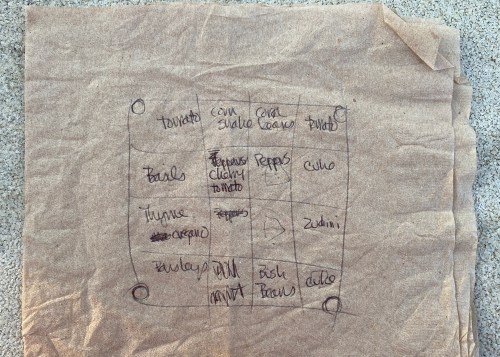 Tomato
Corn
snake
Coral
beans
Tomato
Basils
Peppers
Cherry
tomato
Peppers
Cuke
Thyme
oregano
Peppers
Zuchini
Parsleys
Dill
mint
Bush
Beans
Cuke